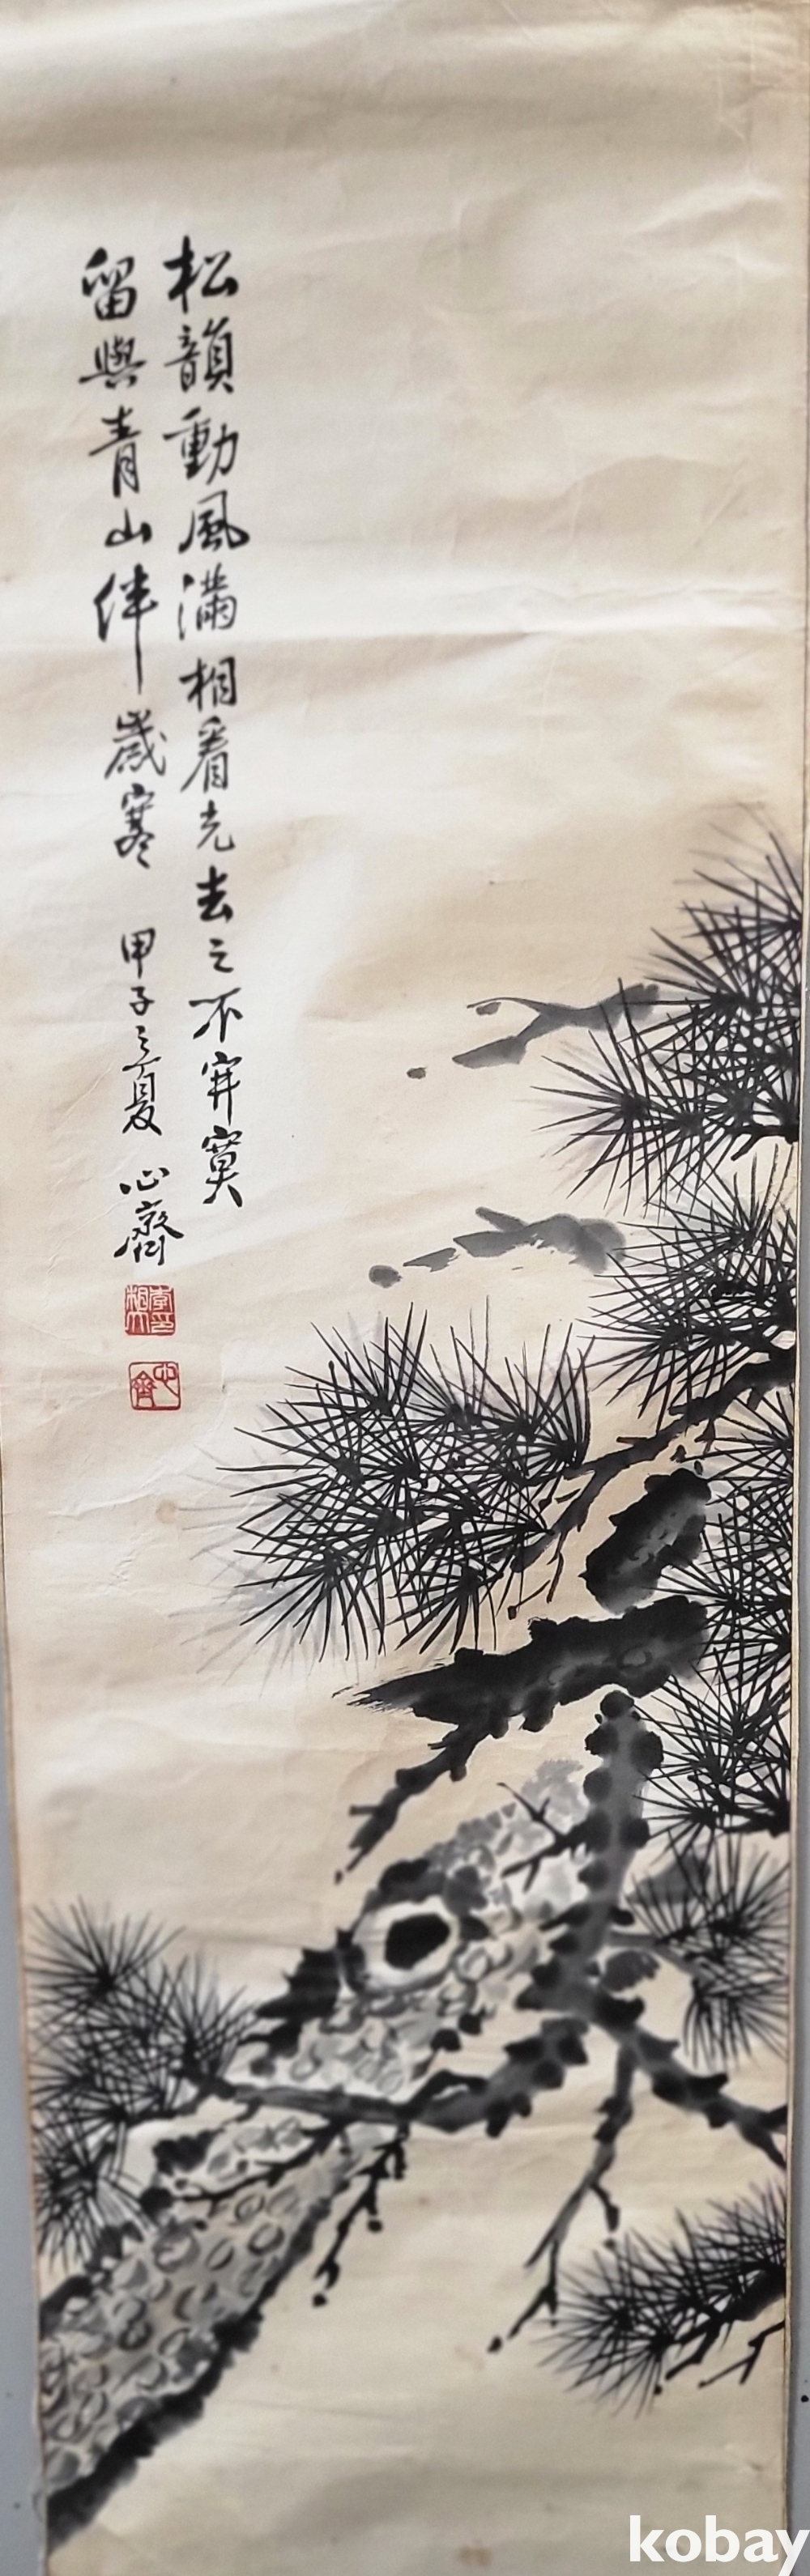 松韻動風滿相看先去之不寂寞
留與青山伴歲寒 甲子之夏 心齋
心齋
kobay